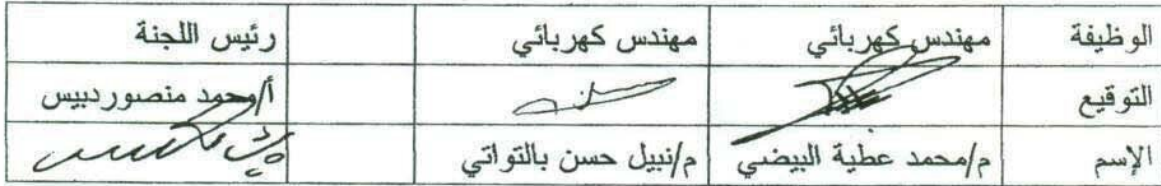 الوظيفة مهندس كهربائي مهندس كهربائي رئيس اللجنة
التوقيع أ/محمد منصور دبيس
الإسم م/محمد عطية البيضي م/نبيل حسن بالتواتي